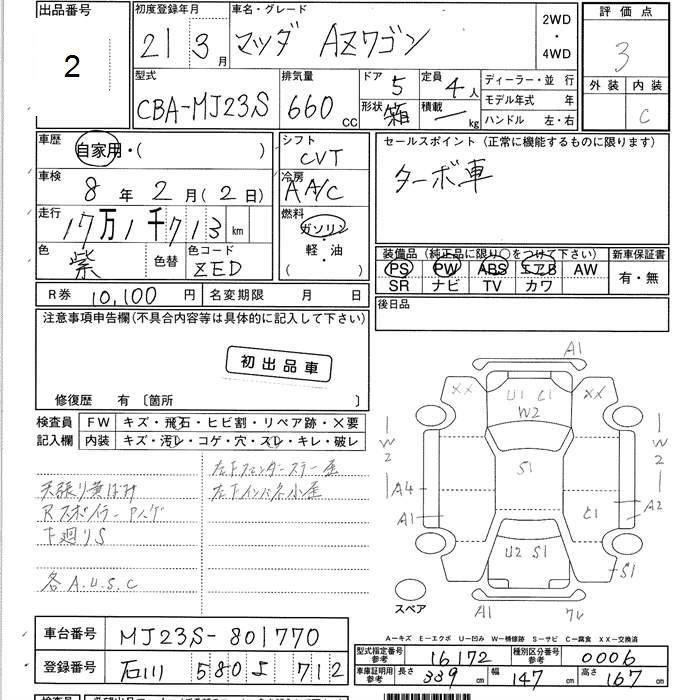 出品番号
2
初度登録年月
21 3月
車名・グレード
マツダ AZワゴン
2WD
・
4WD
評価点
3
外装 内装
C
型式
CBA-MJ23S
排気量
660 cc
ドア 5
形状 箱
定員 4人
積載 ー kg
ディーラー・並行
モデル年式 年
ハンドル 左・右
車歴
自家用・( )
車検
8年2月(2日)
走行
17万1千713km
色
紫
色替
色コード
ZED
シフト
CVT
冷房
AA/C
燃料
ガソリン
・
軽・油
( )
セールスポイント(正常に機能するものに限ります)
ターボ車
装備品(純正品に限り○をつけて下さい)
PS PW ABS エアB AW
SR ナビ TV カワ
新車保証書
有・無
後日品
R券 10,100円
名変期限 月 日
注意事項申告欄(不具合内容等は具体的に記入して下さい)
初出品車
修復歴 有〔箇所 〕
検査員
記入欄
FW キズ・飛石・ヒビ割・リペア跡・×要
内装 キズ・汚レ・コゲ・穴・スレ・キレ・破レ
天張り黄ばみ
Rスポイラー
下廻りS
各A.U.S.C
左Fフェンダーステー歪
左Fインパネ小歪
A1
XX
U1 C1
W2
XX
W2
W2
S1
A4
A1
A2
C1
U2 S1
S1
A1
スペア
A−キズ E−エクボ U−凹み W−補修跡 S−サビ C−腐食 XX−交換済
車台番号
MJ23S-801770
登録番号
石川 580 712
型式指定番号
参考
16172
種別区分番号
参考
0006
車庫証明用
参考
長さ 339cm
幅 147cm
高さ 167cm